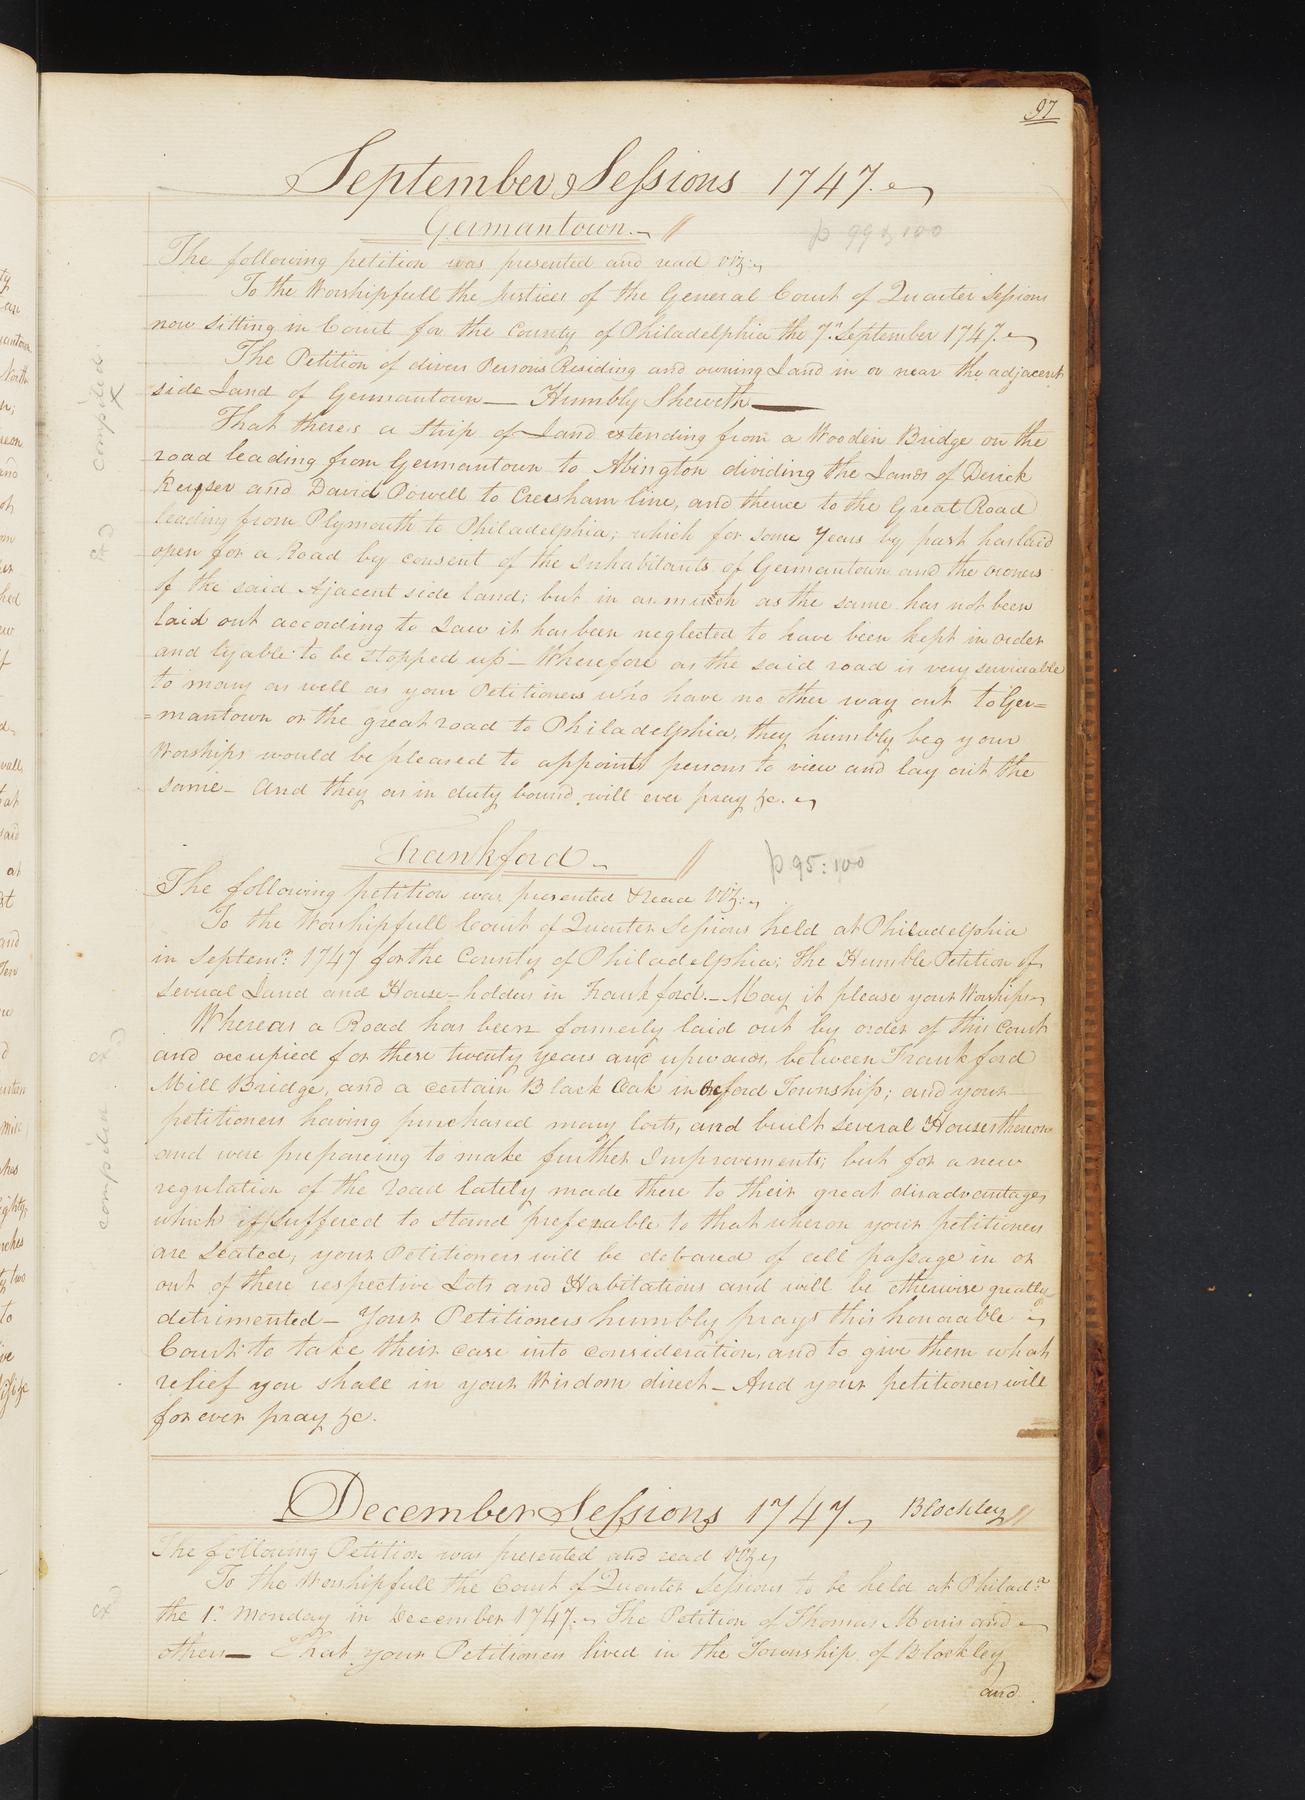 97
September Sessions 1747.
Germantown. p 99 & 100
The following petition was presented and read viz:
To the Worshipfull the Justices of the General Court of Quarter Sessions
now sitting in Court for the County of Philadelphia the 7.th September 1747.
The Petition of divers Persons Residing and owning Land in or near the adjacent
side Land of Germantown — Humbly Sheweth —
That there's a strip of Land extending from a Wooden Bridge on the
road leading from Germantown to Abington dividing the Lands of Derick
Keyser and David Powell to Creesham line, and thence to the Great Road
leading from Plymouth to Philadelphia; which for some Years by past has laid
open for a Road by consent of the Inhabitants of Germantown and the owners
of the said Ajacent side land; but in as much as the same has not been
laid out according to Law it has been neglected to have been kept in order
and lyable to be stopped up — Wherefore as the said road is very serviceable
to many as well as your Petitioners who have no other way out to Ger=
=mantown or the great road to Philadelphia, they humbly beg your
Worships would be pleased to appoint persons to view and lay out the
same — And they as in duty bound will ever pray &c.
Frankford p 95:100
The following petition was presented & read viz:
To the Worshipfull Court of Quarter Sessions held at Philadelphia
in Septem.r 1747 for the County of Philadelphia; The Humble Petition of
several Land and House-holders in Frankford. — May it please your Worships
Whereas a Road has been formerly laid out by order of this Court
and occupied for these twenty years and upwards, between Frankford
Mill Bridge, and a certain Black Oak in Oxford Township; and your
petitioners having purchased many lots, and built several Houses thereon
and were prepareing to make further Improvements; but for a new
regulation of the road lately made there to their great disadvantage,
which if suffered to stand preferable to that wheron your petitioners
are seated, your Petitioners will be debared of all passage in or
out of there respective Lots and Habitations and will be otherwise greatly
detrimented — Your Petitioners humbly prays this honorable
Court to take their case into consideration, and to give them what
relief you shall in your Wisdom direct — And your petitioners will
for ever pray &c.
December Sessions 1747 Blockley
The following Petition was presented and read viz
To the Worshipfull the Court of Quarter Sessions to be held at Philad.a
the 1.st Monday in December 1747. The Petition of Thomas Morris and
others — That your Petitioners lived in the Township of Blockley
and
compiled
compiled